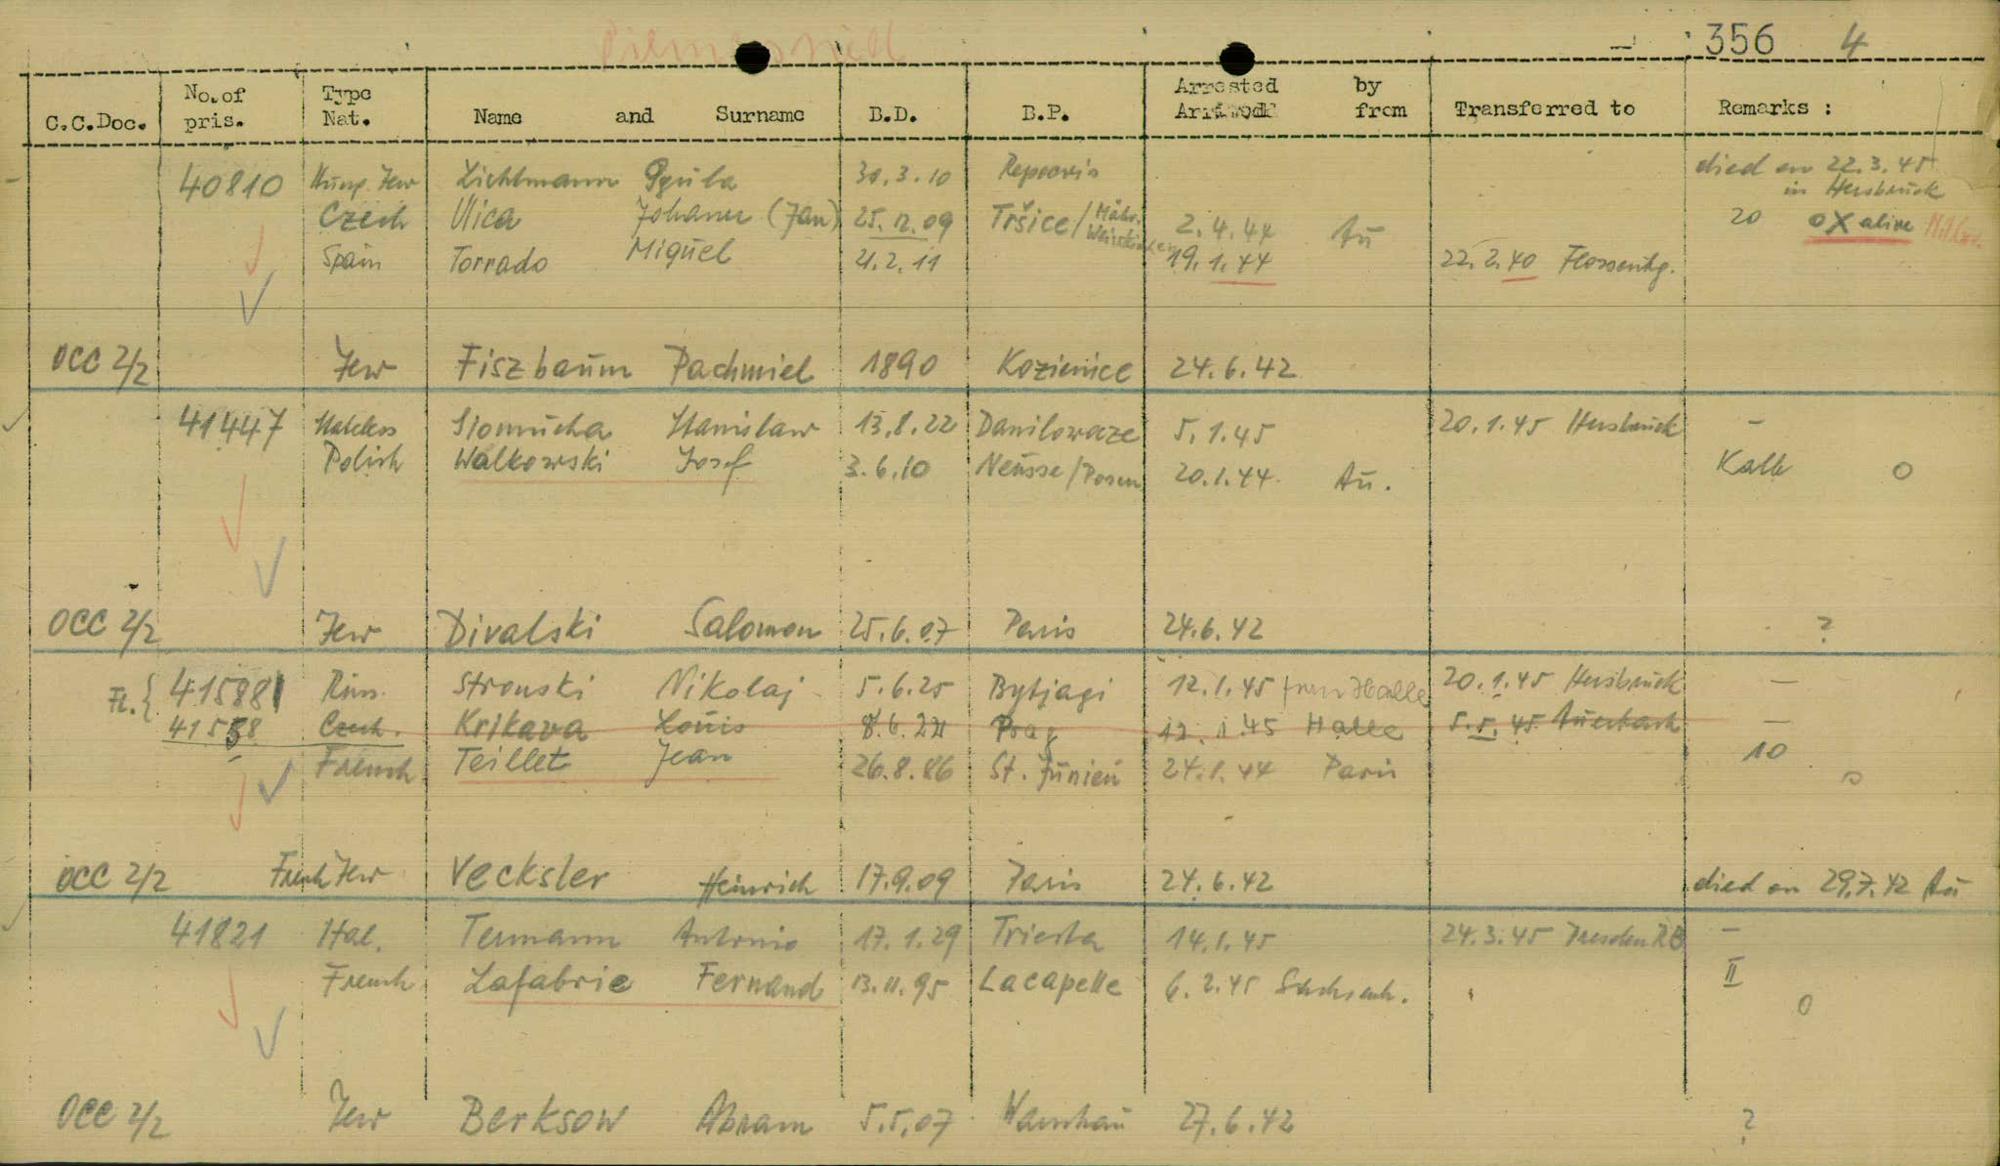 356 4
C.C.Doc. No. of pris. Type Nat. Name and Surname B.D. B.P. Arrested by Arrived from Transferred to Remarks :
40810 Hung. Jew Lichtmann Gyula 30.3.10 died on 22.3.45 in Hersbruck
Czech Ulica Johann (Jan) 25.12.09 Tršice/Mähr. 2.4.44 Au 20 OX alive
Spain Torrado Miguel 21.2.11 19.1.44 22.2.40 Flossenbg.
OCC 2/2 Jew Fiszbaum Pachmiel 1890 Kozienice 24.6.42
41447 Slomucha Stanislaw 13.8.22 Danilowcze 5.1.45 20.1.45 Hersbruck –
Polish Walkowski Josef 3.6.10 Neusse/Posen 20.1.44. Au. Kalk O
OCC 2/2 Jew Divalski Salomon 25.6.07 Paris 24.6.42 ?
Fl. { 41588 Russ. Stronski Nikolaj 5.6.25 Bytjagi 12.1.45 from Halle 20.1.45 Hersbruck –
41558 Czech. Krikava Louis 8.6.22 Prag 12.1.45 Halle 5.5.45 Auerbach –
French Teillet Jean 26.8.86 St. Junien 24.1.44 Paris 10 O
OCC 2/2 French Jew Vecksler Heinrich 17.9.09 Paris 24.6.42 died on 29.7.42 Au
41821 Ital. Termann Antonio 17.1.29 Triesta 14.1.45 24.3.45 Dresden RB –
French Lafabrie Fernand 13.11.95 Lacapelle 6.2.45 Sachsenh. II O
OCC 2/2 Jew Berksow Abram 5.5.07 Warschau 27.6.42 ?